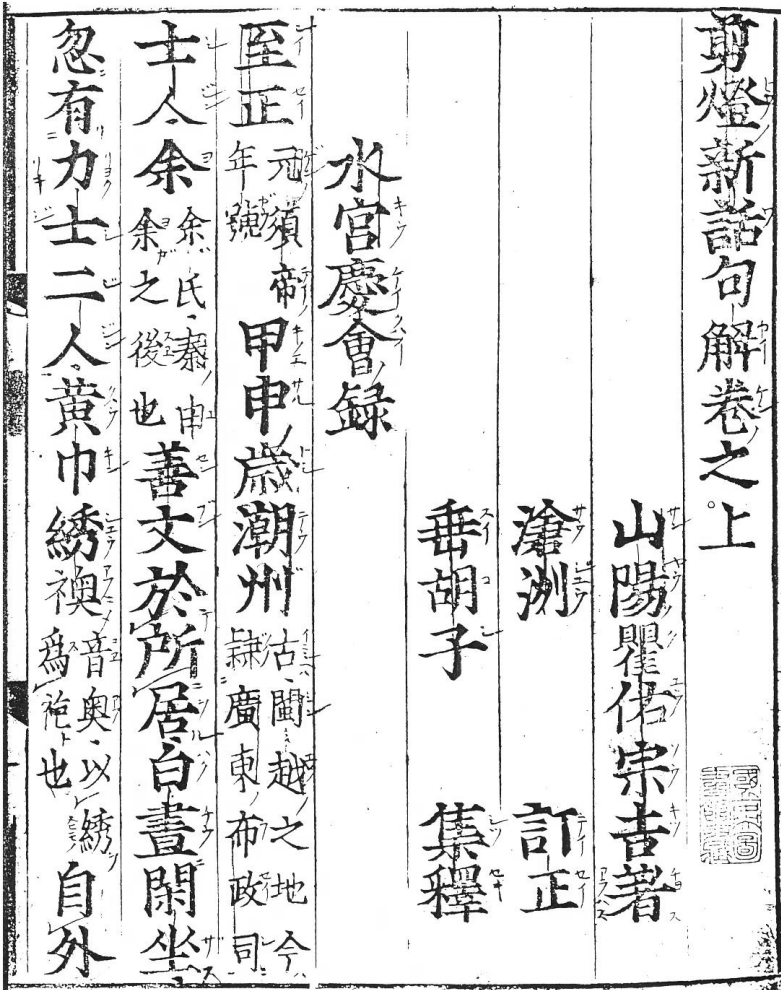 剪燈新話句解卷之上
山陽瞿佑宗吉著
滄洲 訂正
垂胡子 集釋
水宮慶會録
至正元須帝年號甲申歳潮州古閩越之地今隸廣東布政司
士人余余氏秦由余之後也善文於所居白晝閑坐
忽有力士二人黄巾綉襖音奥以綉爲袍也自外